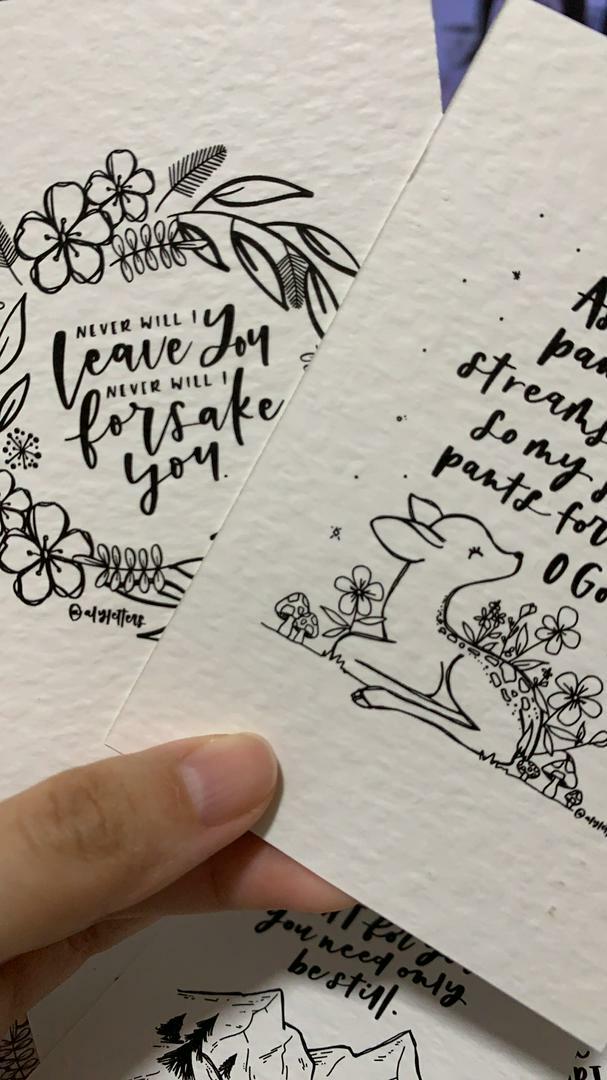 NEVER WILL I
leave you
NEVER WILL I
forsake
you.
@alyletters
As
streams
So my
pants for
O Go
you need only
be still.